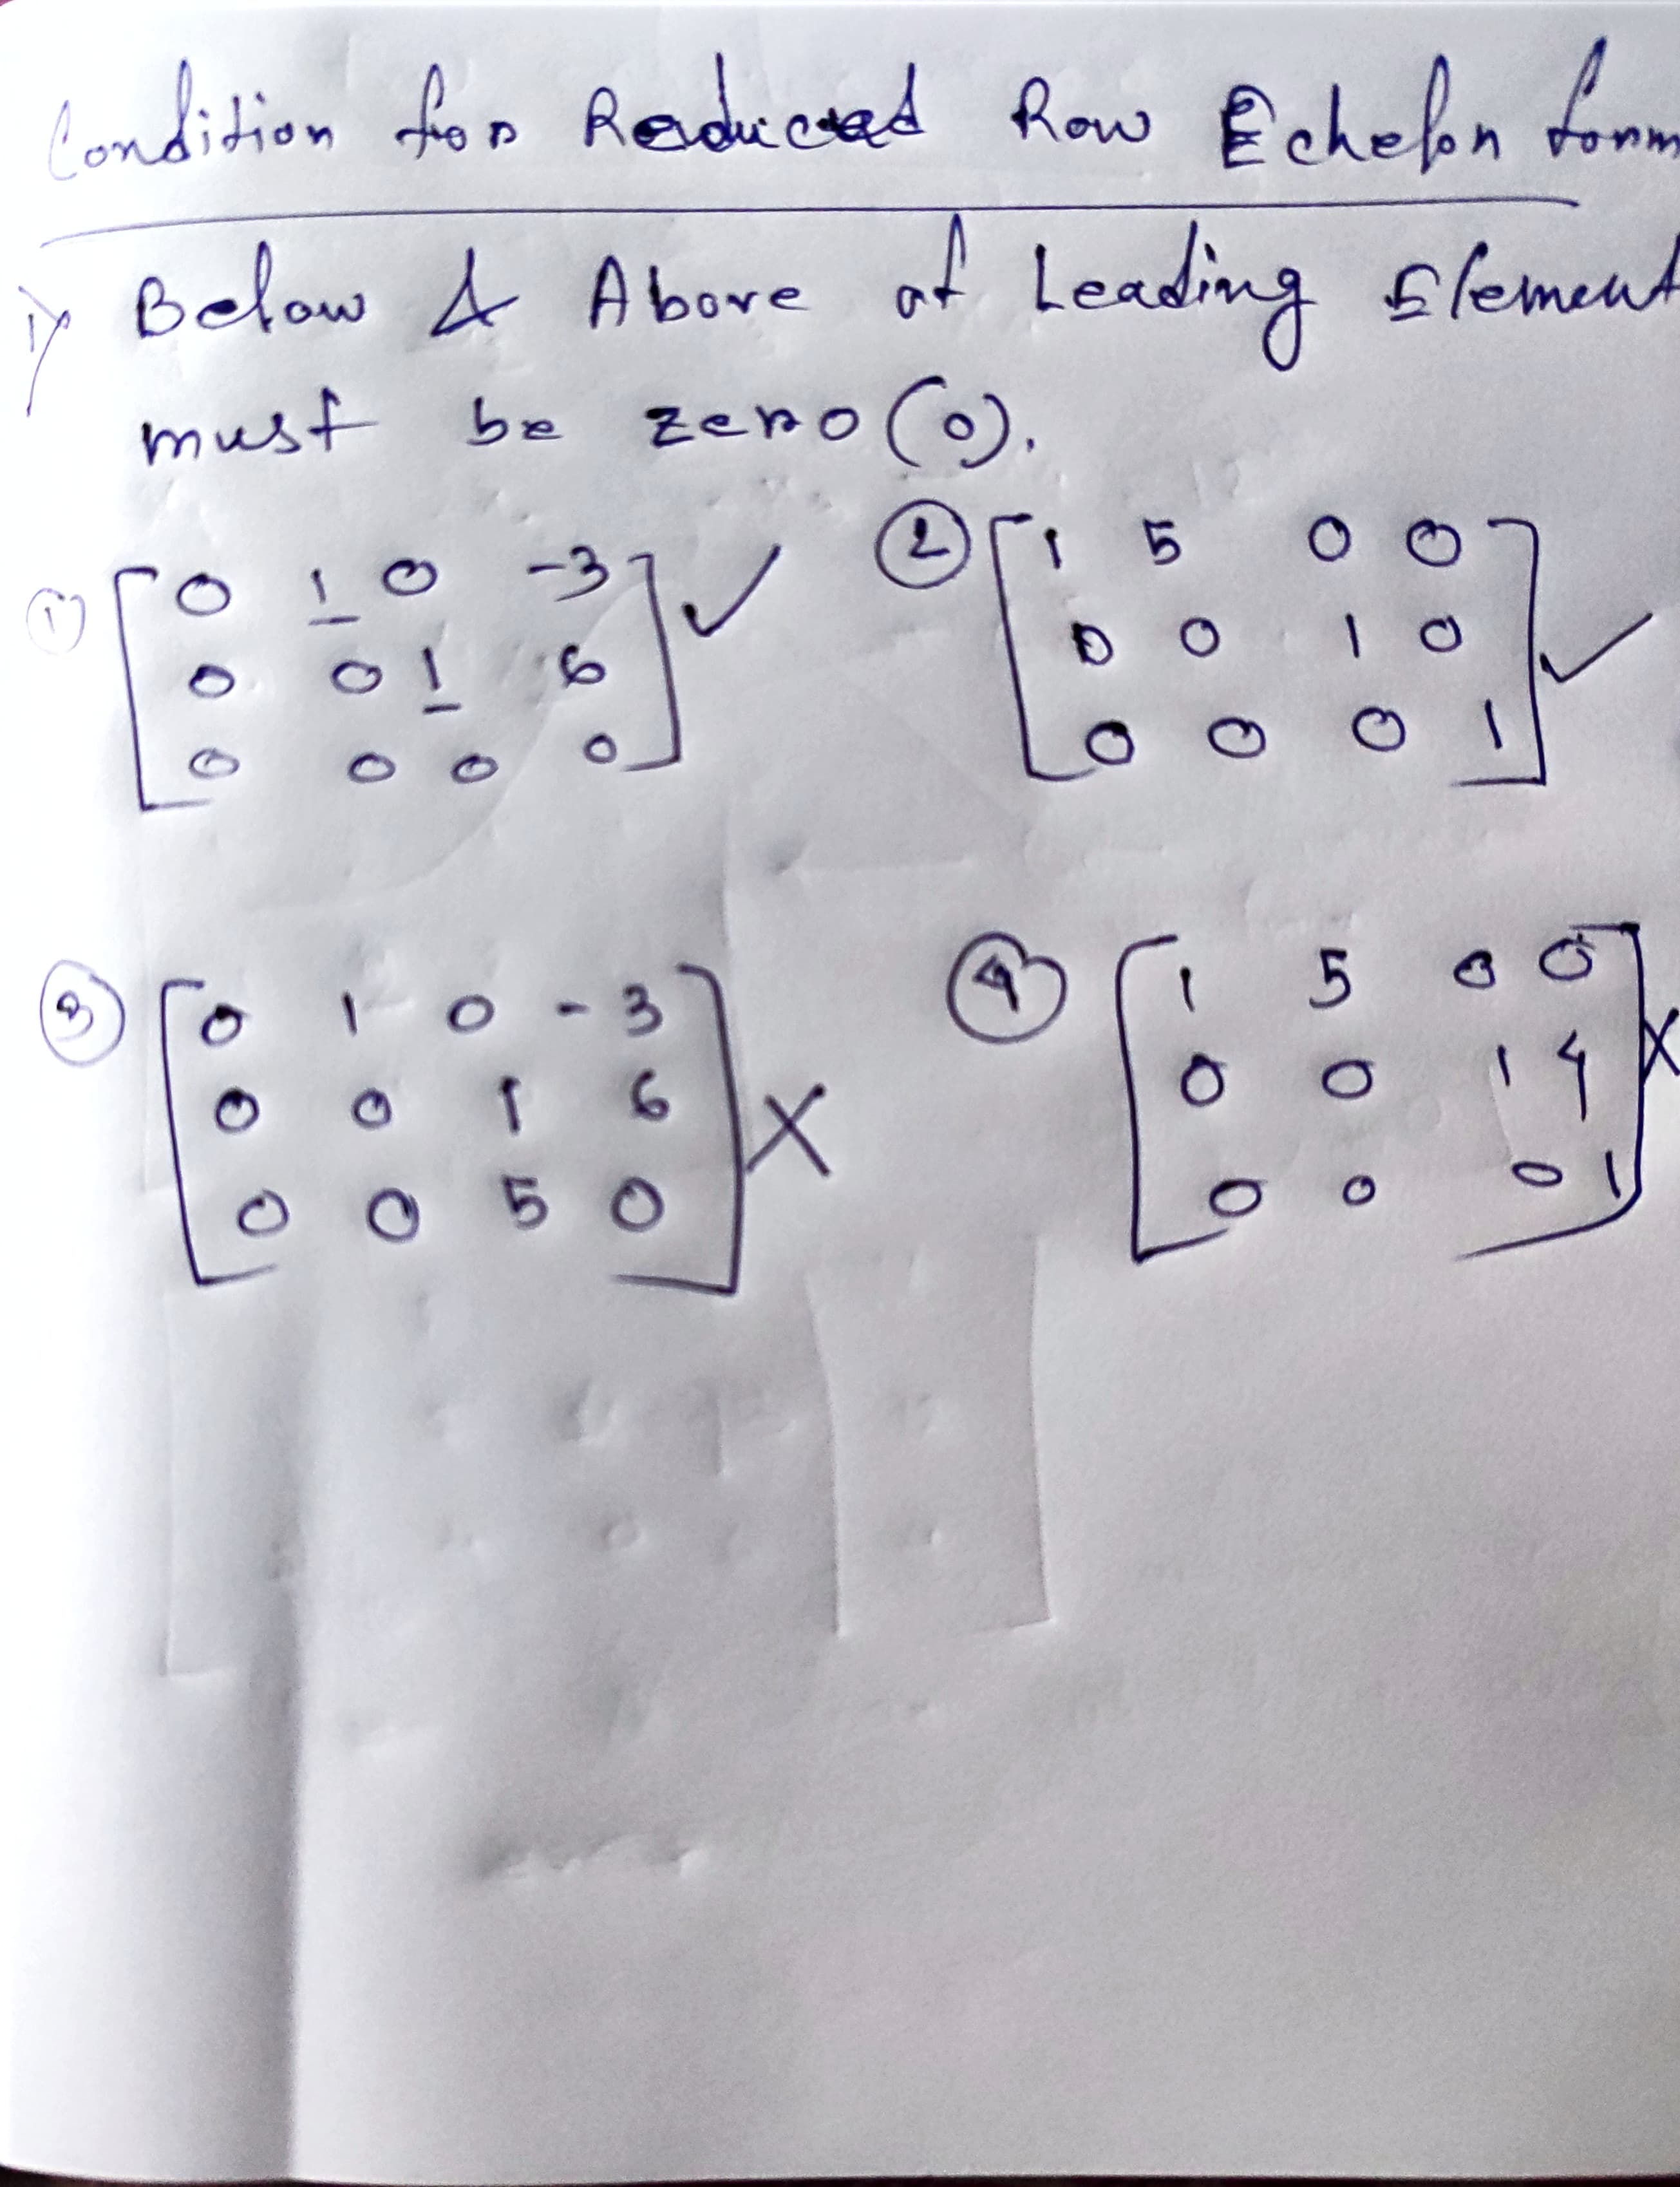 Condition for Reduced Row Echelon form
1) Below & Above of Leading Element
must be zero (0).
① [ 0 1 0 -3 ] ✓ ② [ 1 5 0 0 ] ✓
0 0 1 6 0 0 1 0
0 0 0 0 0 0 0 1
③ [ 0 1 0 -3 ] X ④ [ 1 5 0 0 ] X
0 0 1 6 0 0 1 4
0 0 5 0 0 0 0 1